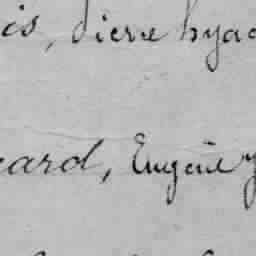 is, Pierre hya
ard, Eugène